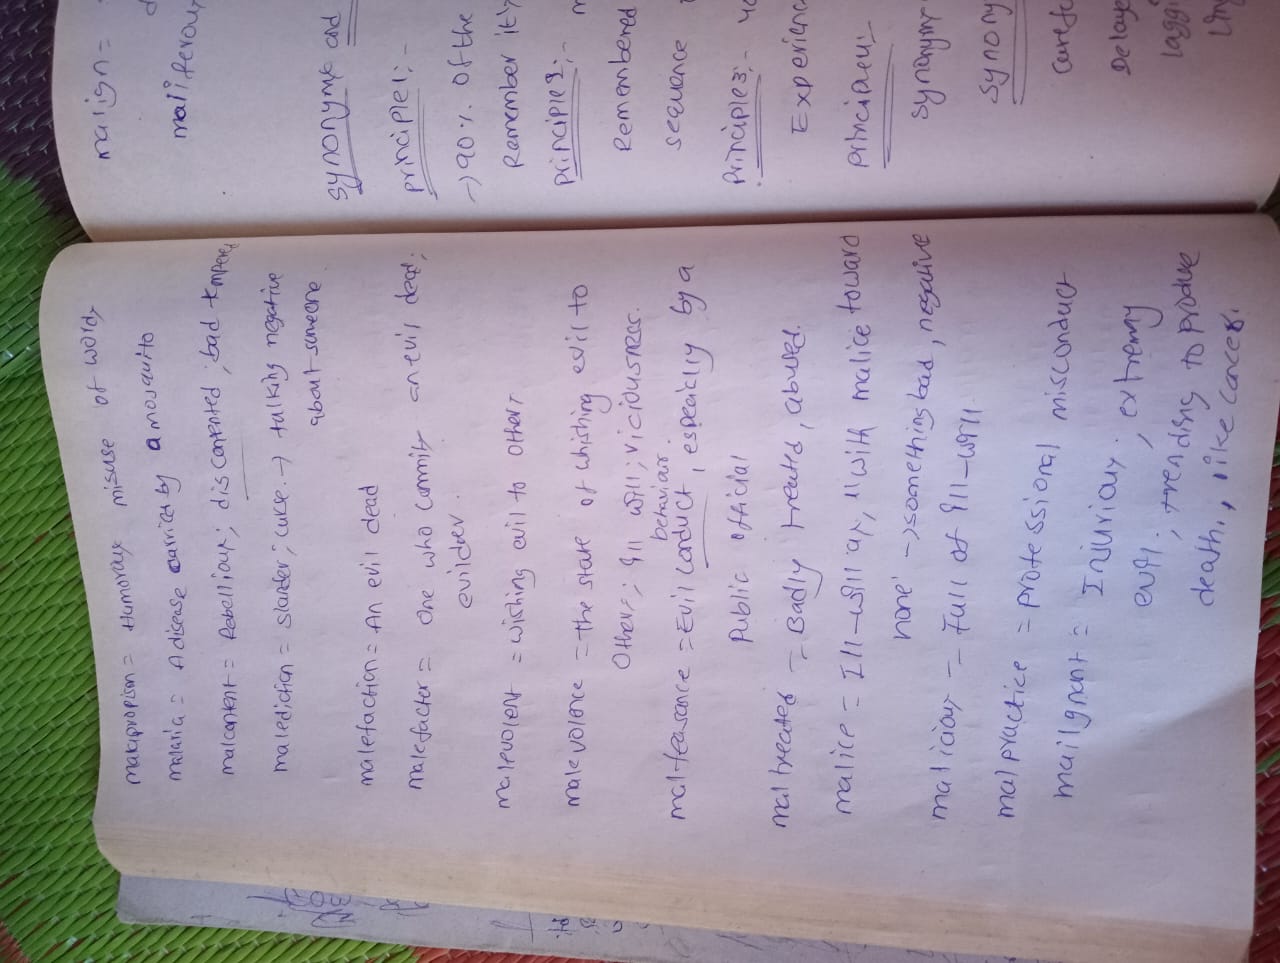 malapropism = Humoraux misuse of words
malaria = A disease carried by a mosquito
malcontent = Rebelliour; discontented; bad tempered
malediction = slander; curse. → talking negative
about someone
malefaction = An evil dead
malefacter = one who commits an evil dead;
evildoer.
malevolent = wishing evil to others
malevolence = the state of whishing evil to
Others; Ill will; viciousness.
behavior
malfeasance = Evil conduct, especially by a
public official
maltreated = Badly treated, abused.
malice = Ill-will as, "with malice toward
none" → something bad, negative
maliciour = Full of Ill-will
malpractice = professional misconduct
mailgnant = Injuriour, extremy
evil, trending to produce
death, like cancer.
malign =
maliferour
synonyms and
principle1:-
→ 90% of the
Remember it's
principle2:-
Remembered
sequence
principle3:-
Experienc
principle4:-
synonyms
synony
careful
Delaye
laggi